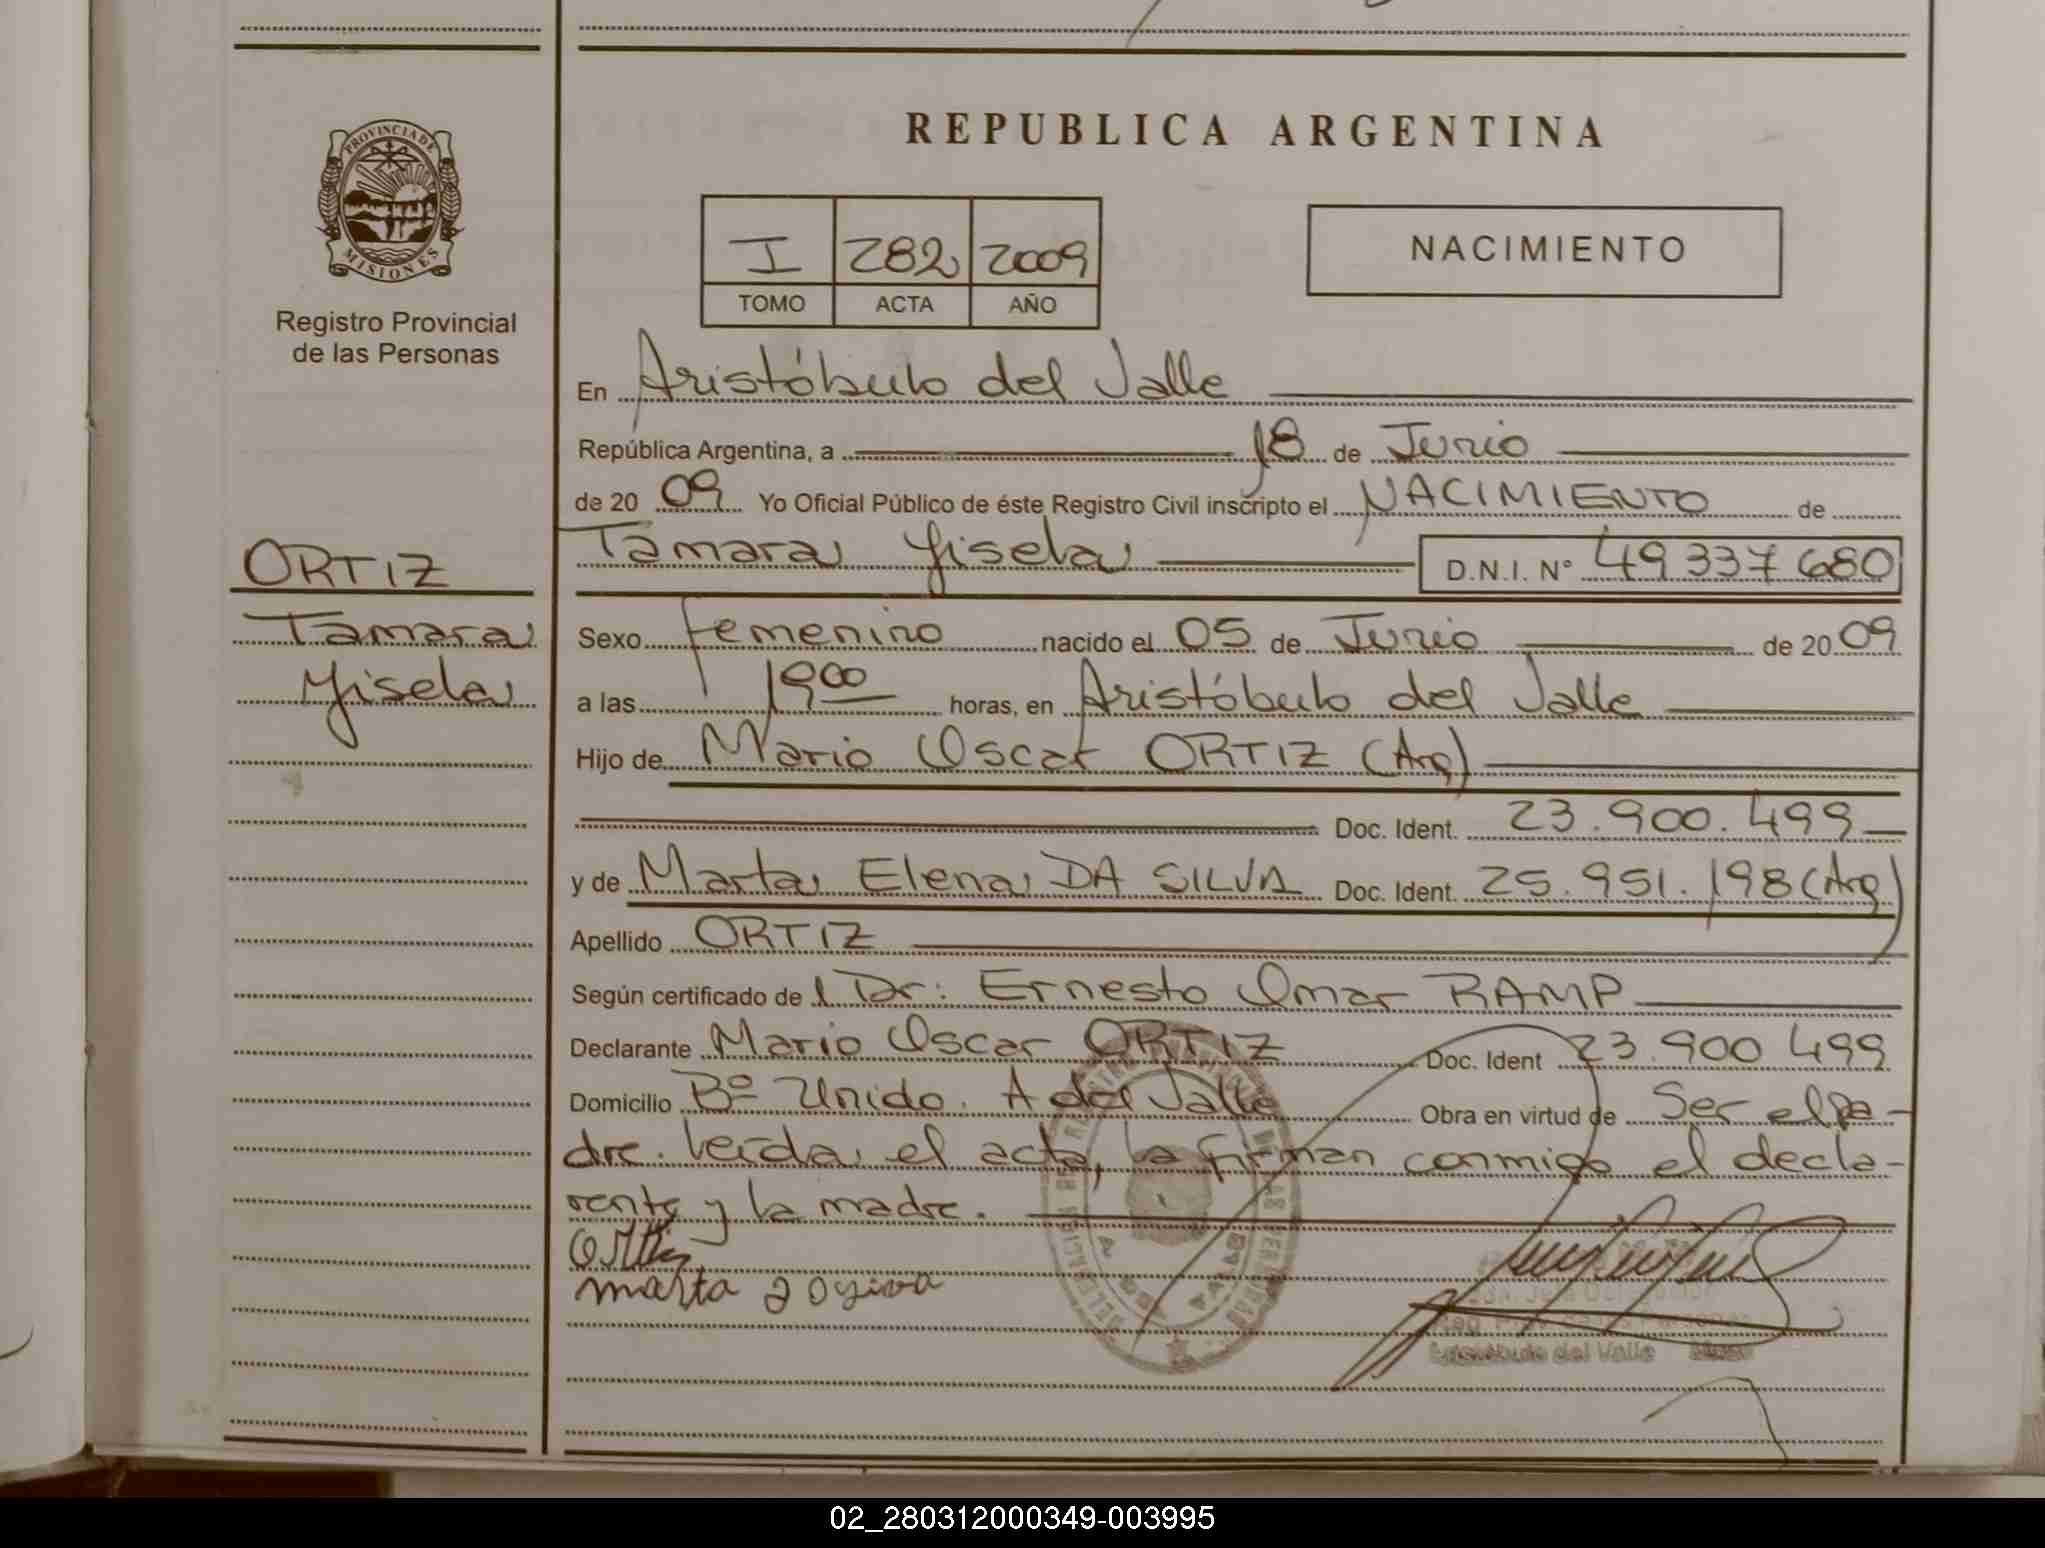 PROVINCIA DE
MISIONES
Registro Provincial
de las Personas
ORTIZ
Tamara
Yisela
REPUBLICA ARGENTINA
I 282 2009
TOMO ACTA AÑO
NACIMIENTO
En Aristóbulo del Valle
República Argentina, a 18 de Junio
de 20 09 Yo Oficial Público de éste Registro Civil inscripto el NACIMIENTO de
Tamara Yisela D.N.I. N° 49 337 680
Sexo Femenino nacido el 05 de Junio de 20 09
a las 19 00 horas, en Aristóbulo del Valle
Hijo de Mario Oscar ORTIZ (Arg)
Doc. Ident. 23.900.499
y de Marta Elena DA SILVA Doc. Ident. 25.951.198 (Arg)
Apellido ORTIZ
Según certificado de Dr: Ernesto Omar RAMP
Declarante Mario Oscar ORTIZ Doc. Ident 23.900 499
Domicilio Bº Unido. A del Valle Obra en virtud de Ser el pa-
dre. Leída el acta, la firman conmigo el decla-
rante y la madre.
Ortiz
marta
Aristóbulo del Valle
02_280312000349-003995